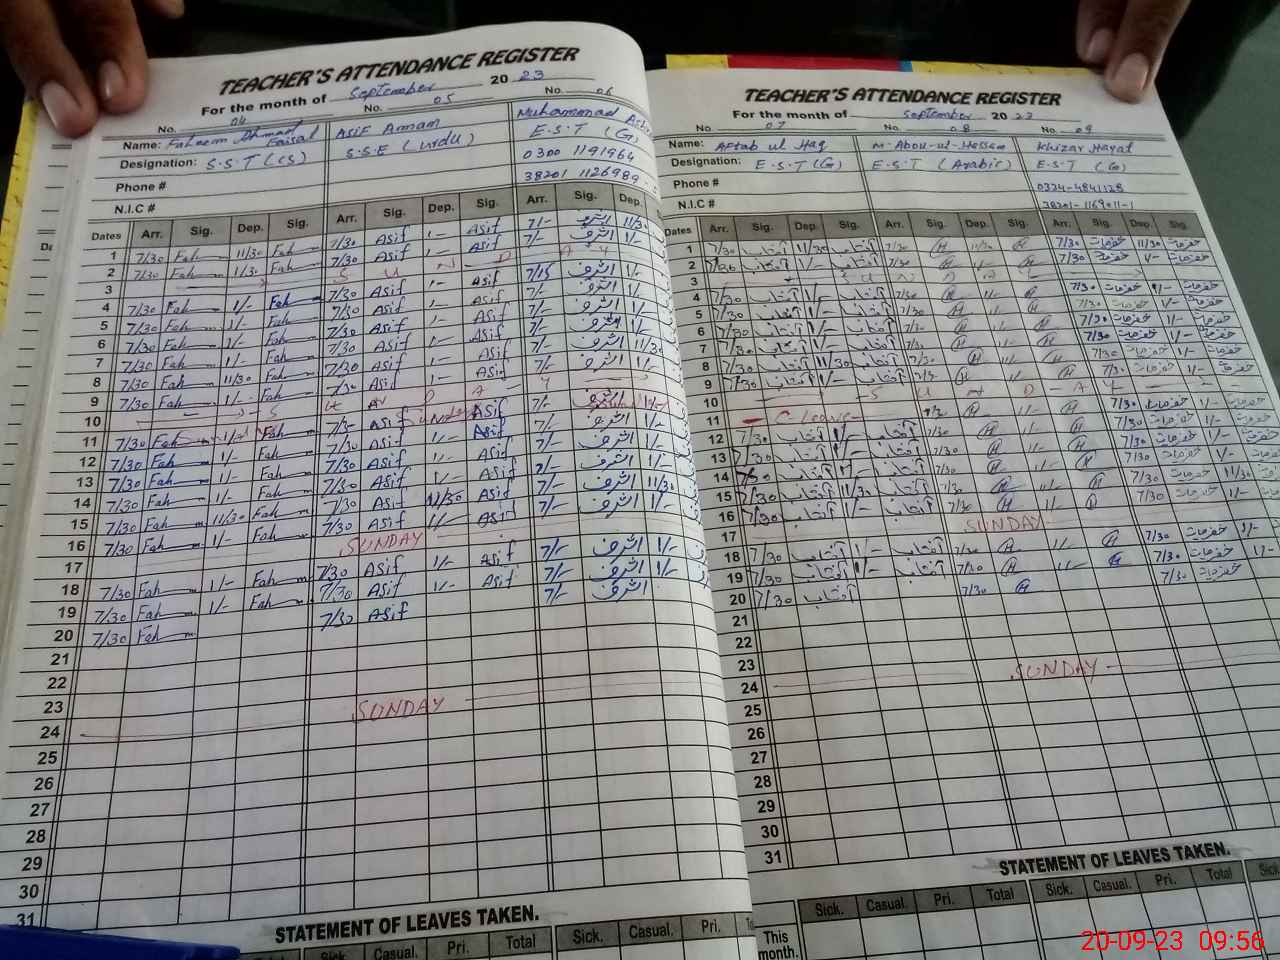 TEACHER'S ATTENDANCE REGISTER
For the month of September 20 23
No. 04 No. 05 No. 06
Name: Faheem Ahmad Faisal Asif Amam Muhammad
Designation: S.S.T (CS) S.S.E (Urdu) E.S.T (G)
Phone # 0300 1191964
N.I.C # 38201 1126989
Dates Arr. Sig. Dep. Sig. Arr. Sig. Dep. Sig. Arr. Sig. Dep.
1 7/30 Fah 11/30 Fah 7/30 Asif 1/- Asif 7/- اشرف 11/30
2 7/30 Fah 11/30 Fah 7/30 Asif 1/- Asif 7/- اشرف 1/-
3 S U N D A Y
4 7/30 Fah 1/- Fah 7/30 Asif 1/- Asif 7/15 اشرف 1/-
5 7/30 Fah 1/- Fah 7/30 Asif 1/- Asif 7/- اشرف 1/-
6 7/30 Fah 1/- Fah 7/30 Asif 1/- Asif 7/- اشرف 1/-
7 7/30 Fah 1/- Fah 7/30 Asif 1/- Asif 7/- اشرف 1/-
8 7/30 Fah 11/30 Fah 7/30 Asif 1/- Asif 7/- اشرف 11/30
9 7/30 Fah 1/- Fah 7/30 Asif 1/- Asif 7/- اشرف
10 S U N D A Y
11 7/30 Fah 1/- Fah Asif Asif 7/- اشرف
12 7/30 Fah 1/- Fah 7/30 Asif 1/- Asif 7/- اشرف 1/-
13 7/30 Fah 1/- Fah 7/30 Asif 1/- Asif 7/- اشرف 1/-
14 7/30 Fah 1/- Fah 7/30 Asif 1/- Asif 7/- اشرف 1/-
15 7/30 Fah 11/30 Fah 7/30 Asif 11/30 Asif 7/- اشرف 11/30
16 7/30 Fah 1/- Fah 7/30 Asif 1/- Asif 7/- اشرف 1/-
17 SUNDAY
18 7/30 Fah 1/- Fah 7/30 Asif 1/- Asif 7/- اشرف 1/-
19 7/30 Fah 1/- Fah 7/30 Asif 1/- Asif 7/- اشرف 1/-
20 7/30 Fah 7/30 Asif 7/- اشرف
21
22
23
24 SUNDAY
25
26
27
28
29
30
31
STATEMENT OF LEAVES TAKEN.
Sick. Casual. Pri. Total Sick. Casual. Pri.
TEACHER'S ATTENDANCE REGISTER
For the month of September 20 23
No 07 No. 08 No. 09
Name: Aftab ul Haq M. Khizar Hayat
Designation: E.S.T (G) E.S.T (Arabic) E.S.T (G)
Phone # 0324-4841128
N.I.C # 38201-1169011-1
Dates Arr. Sig. Dep. Sig. Arr. Sig. Dep. Sig. Arr. Sig. Dep. Sig.
1 7/30 آفتاب 11/30 آفتاب 7/30 11/30 7/30 خضرحیات 11/30 خضرحیات
2 7/30 آفتاب 1/- آفتاب 7/30 1/- 7/30 خضرحیات 1/- خضرحیات
3 S U N D A Y
4 7/30 آفتاب 1/- آفتاب 7/30 1/- 7/30 خضرحیات 1/- خضرحیات
5 7/30 آفتاب 1/- آفتاب 7/30 1/- 7/30 خضرحیات 1/- خضرحیات
6 7/30 آفتاب 1/- آفتاب 7/30 1/- 7/30 خضرحیات 1/- خضرحیات
7 7/30 آفتاب 1/- آفتاب 7/30 1/- 7/30 خضرحیات 1/- خضرحیات
8 7/30 آفتاب 11/30 آفتاب 7/30 7/30 خضرحیات خضرحیات
9 7/30 آفتاب 1/- آفتاب 7/30 1/- 7/30 خضرحیات 1/- خضرحیات
10 S U N D A Y
11 C. leave 1/- 7/30 خضرحیات 1/- خضرحیات
12 7/30 آفتاب 1/- آفتاب 7/30 1/- 7/30 خضرحیات 1/- خضرحیات
13 7/30 آفتاب 1/- آفتاب 7/30 1/- 7/30 خضرحیات 1/- خضرحیات
14 7/30 آفتاب 1/- آفتاب 7/30 1/- 7/30 خضرحیات 1/- خضرحیات
15 7/30 آفتاب 11/30 آفتاب 7/30 7/30 خضرحیات 11/30 خضرحیات
16 7/30 آفتاب 1/- آفتاب 7/30 1/- 7/30 خضرحیات 1/- خضرحیات
17 SUNDAY
18 7/30 آفتاب 1/- آفتاب 7/30 1/- 7/30 خضرحیات 1/- خضرحیات
19 7/30 آفتاب 1/- آفتاب 7/30 1/- 7/30 خضرحیات 1/- خضرحیات
20 7/30 آفتاب 7/30 7/30 خضرحیات
21
22
23
24 SUNDAY
25
26
27
28
29
30
31
STATEMENT OF LEAVES TAKEN.
Sick. Casual. Pri. Total Sick. Casual. Pri. Total Sick
This month.
20-09-23 09:56